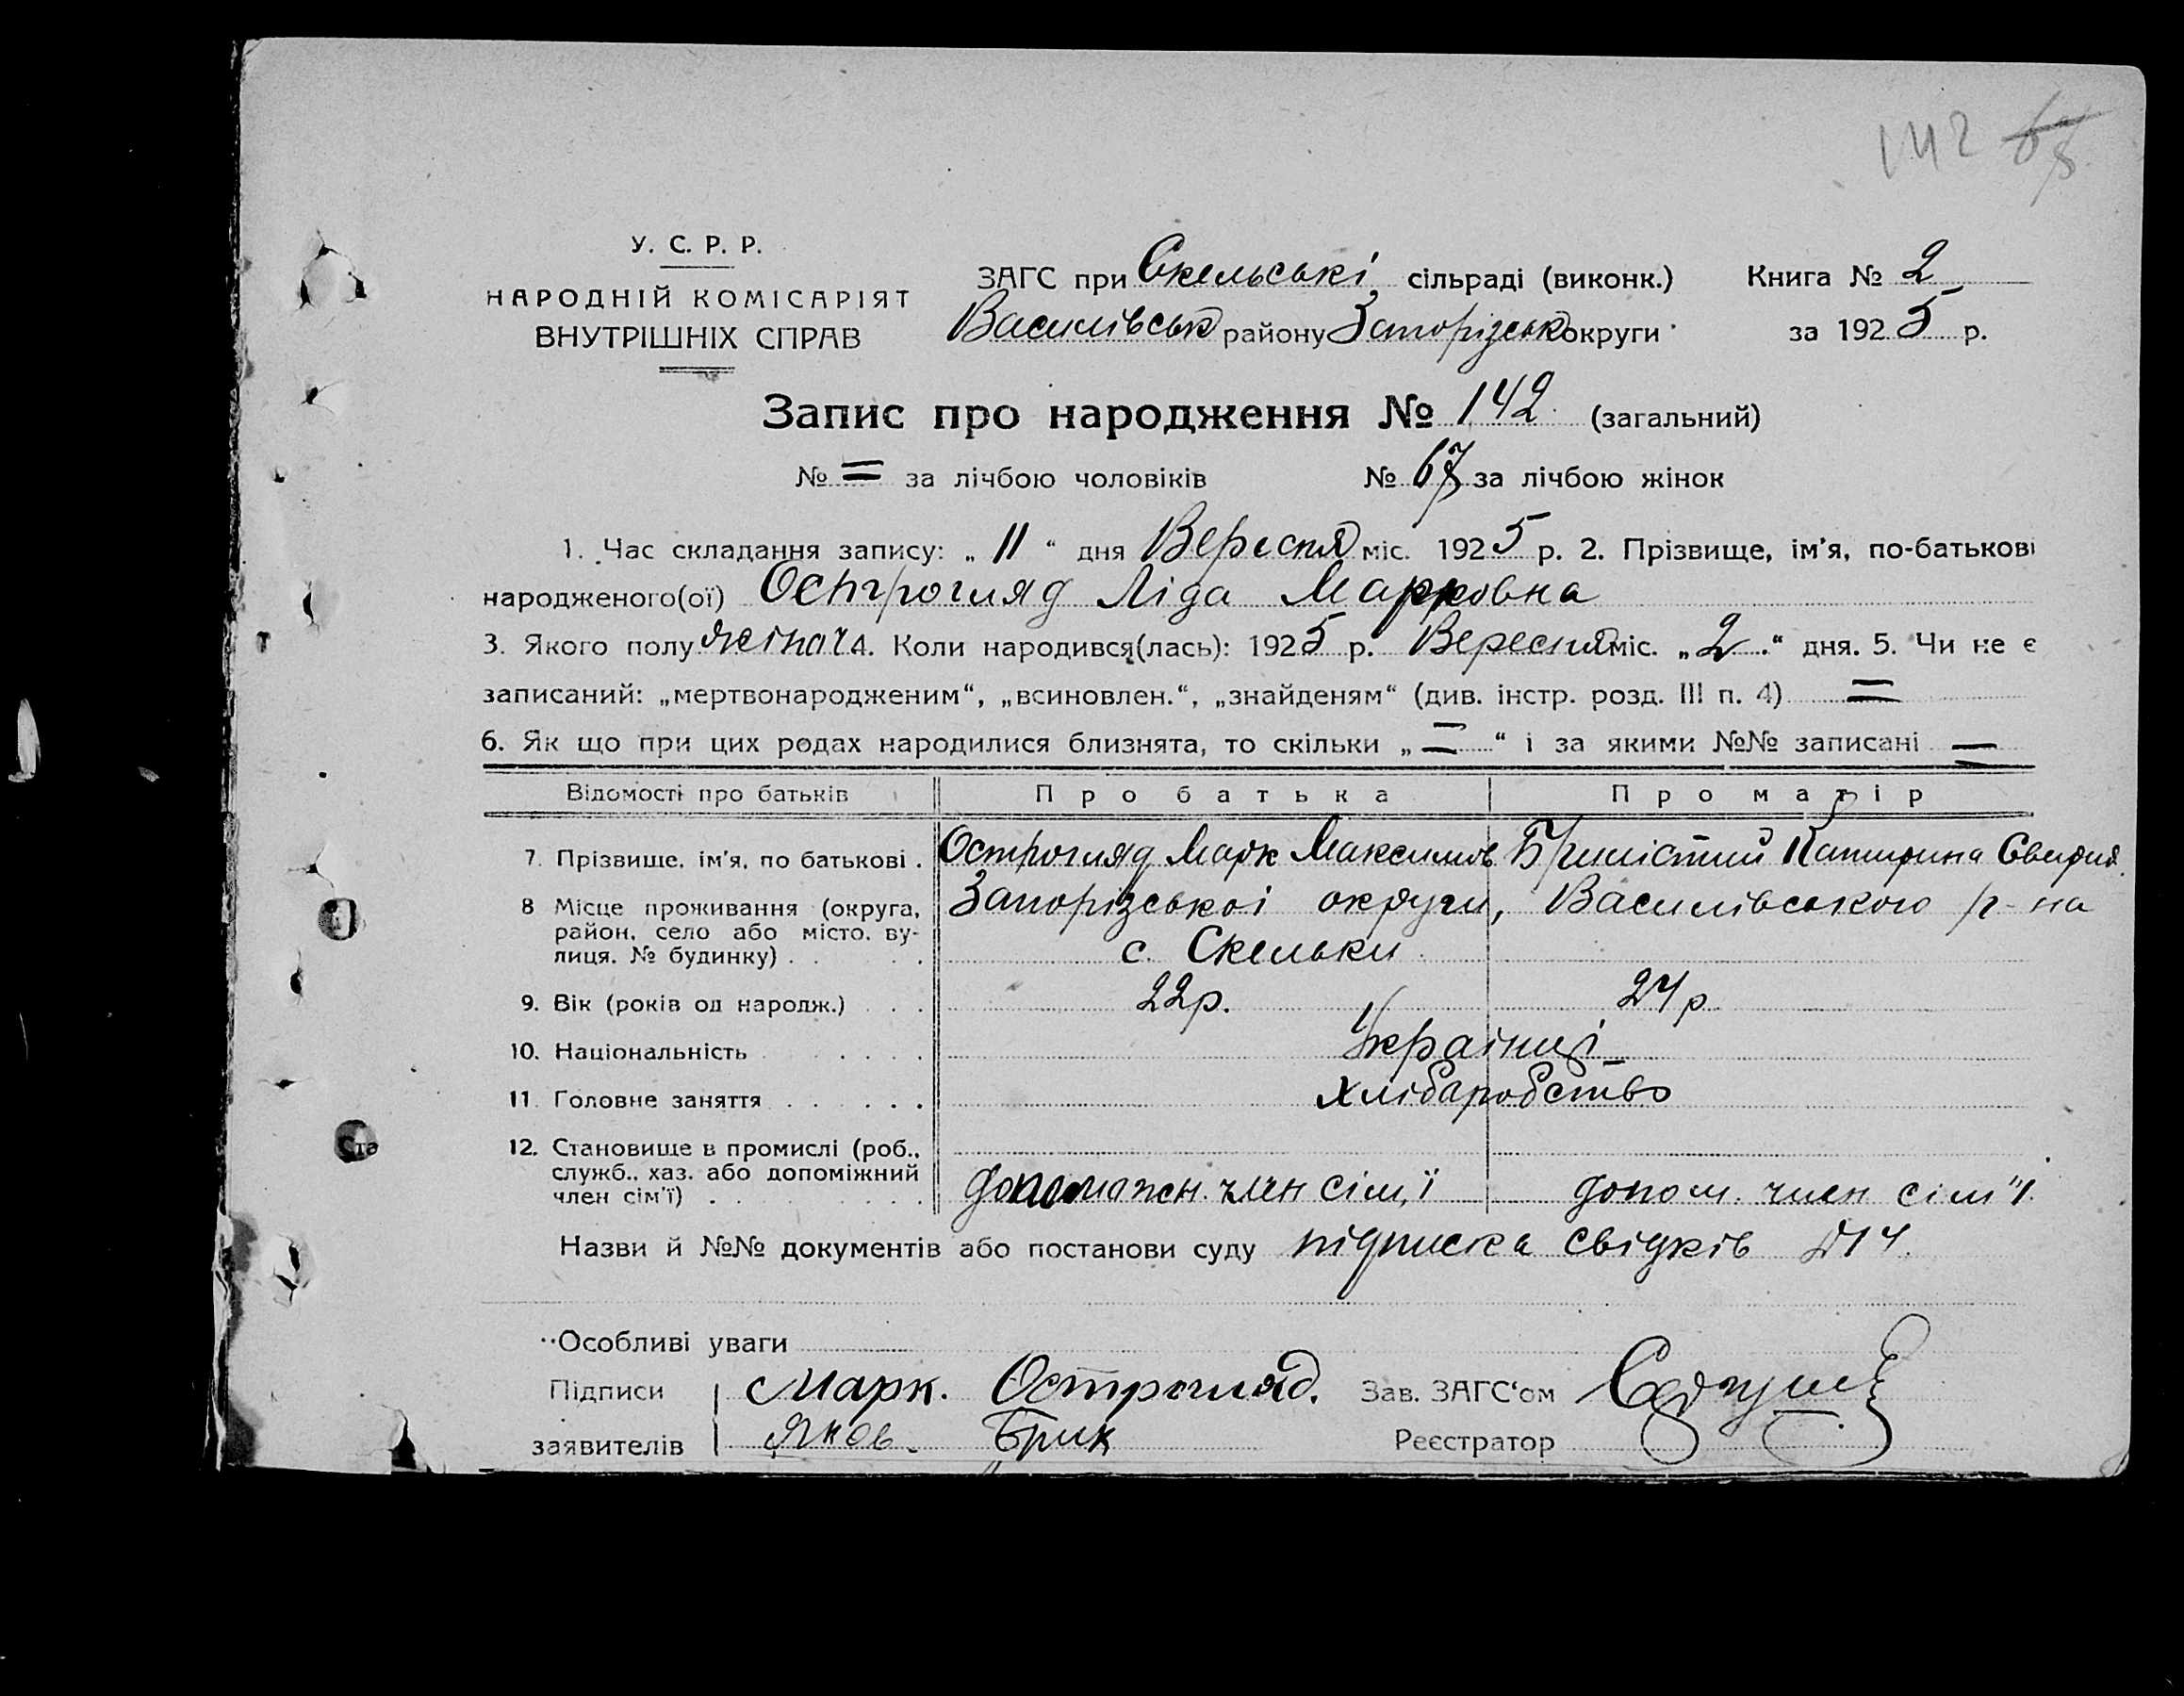 142 67
У. С. Р. Р.
НАРОДНІЙ КОМІСАРІЯТ
ВНУТРІШНІХ СПРАВ
ЗАГС при Скельські сільраді (виконк.) Книга № 2
Василівськ району Запорізськ округи за 1925 р.
Запис про народження № 142 (загальний)
№ = за лічбою чоловіків № 67 за лічбою жінок
1. Час складання запису: „ 11 “ дня Вересня міс. 1925 р. 2. Прізвище, ім'я, по-батькові
народженого(ої) Острогляд Ліда Марковна
3. Якого полу жіноч 4. Коли народився(лась): 1925 р. Вересня міс. „ 2 “ дня. 5. Чи не є
записаний: „мертвонародженим“, „всиновлен.“, „знайденям“ (див. інстр. розд. III п. 4) =
6. Як що при цих родах народилися близнята, то скільки „ = “ і за якими №№ записані =
Відомості про батьків Про батька Про матір
7. Прізвище, ім'я, по батькові . Острогляд Марк Максимов Катирина Свирид.
8 Місце проживання (округа, Запорізської округи, Василівського р-на
район, село або місто, ву- с. Скельки
лиця, № будинку) . .
9. Вік (років од народж.) . . . 22р. 24р
10. Національність . . . . Українці
11. Головне заняття . . . . . хлібаробство
12. Становище в промислі (роб.,
служб., хаз. або допоміжний допоможн. член сім,ї допом. член сім"ї
член сім'ї) . .
Назви й №№ документів або постанови суду підписка свідків №14.
Особливі уваги
Підписи Марк. Острогляд. Зав. ЗАГС'ом
заявителів Яков. Брик Реєстратор
Ста